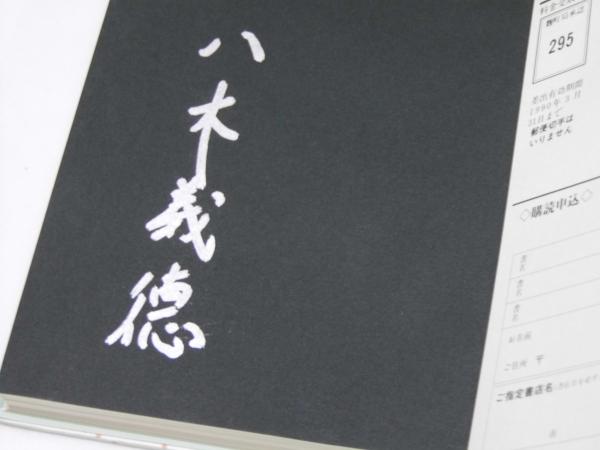 八木義徳
料金受取人
麹町局承認
295
差出有効期間
1990年3月
31日まで
郵便切手は
いりません
◇購読申込◇
書名
書名
書名
お名前
ご住所 〒
ご指定書店名